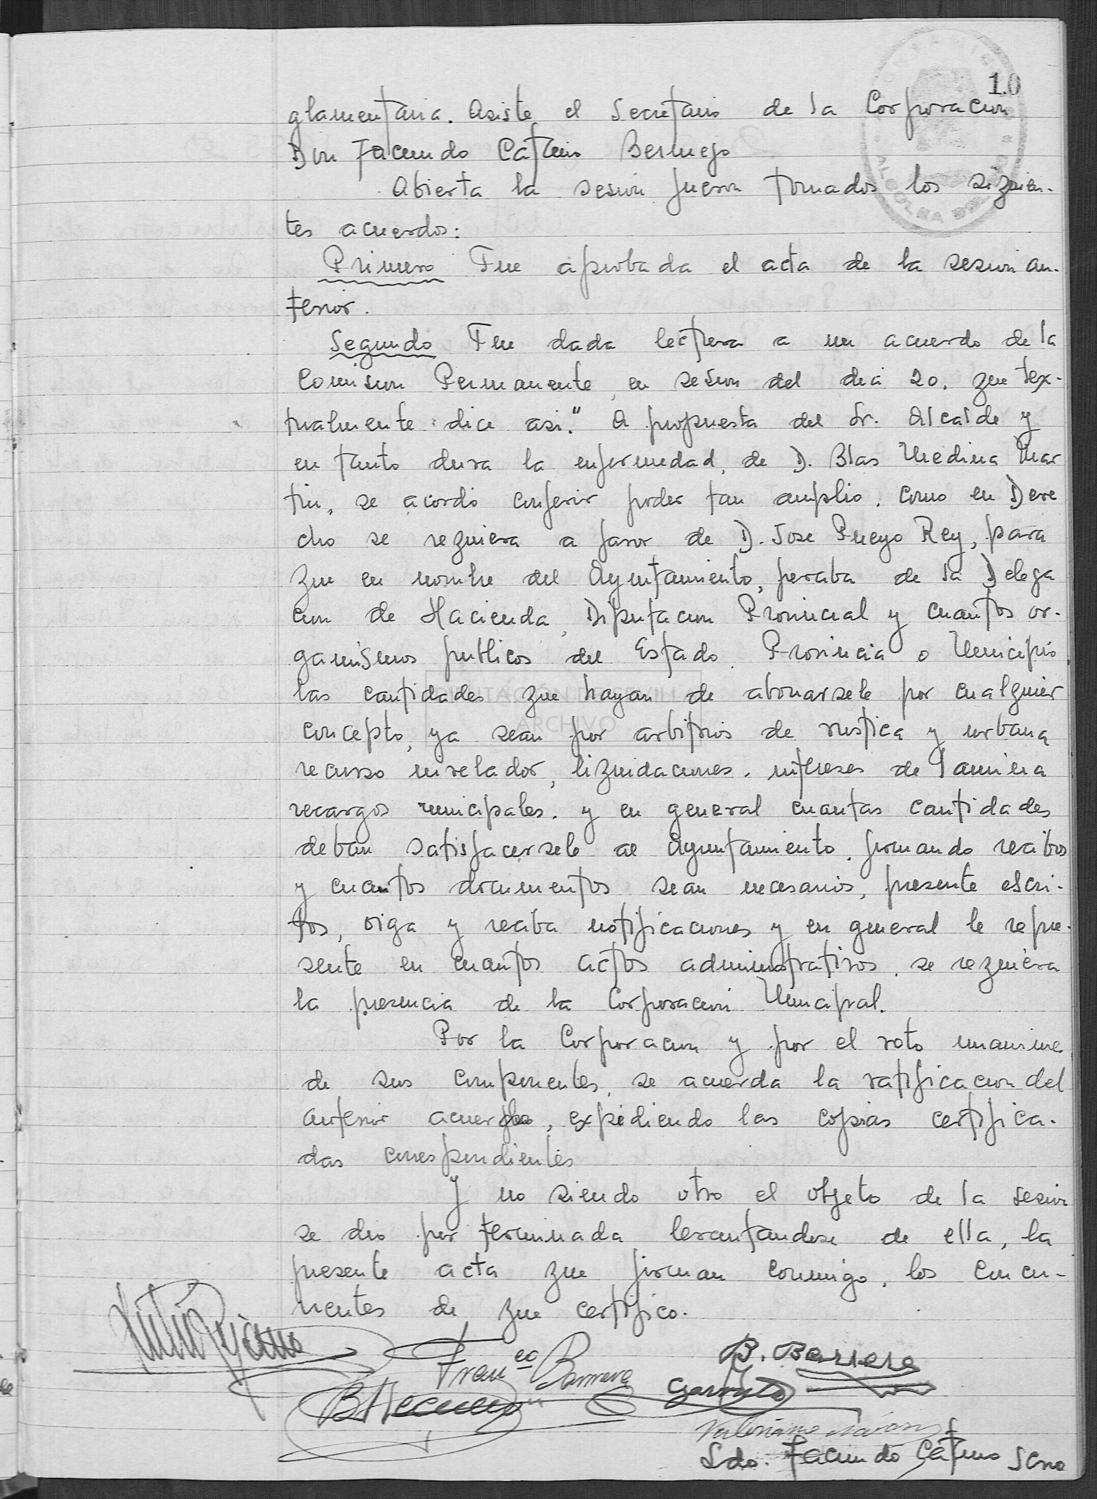 10
glamentaria. Asiste el Secretario de la Corporacion
Don Facundo Cátreno Bermejo
Abierta la sesión fueron tomados los siguien-
tes acuerdos:
Primero Fue aprobada el acta de la sesion an-
terior.
Segundo Fue dada lectura a un acuerdo de la
Comision Permanente, en sesion del dia 20. que tex-
tualmente dice asi." A propuesta del Sr. Alcalde y
en tanto dura la enfermedad, de D. Blas Medina Mar
tin, se acordó conferir poder tan amplio. como en Dere
cho se requiera a favor de D. Jose Pueyo Rey, para
que en nombre del Ayuntamiento, perciba de la Delega
cion de Hacienda, Diputacion Provincial y cuantos or-
ganismos publicos del Estado. Provincia o Municipio
las cantidades que hayan de abonarsele por cualquier
concepto, ya sean por arbitrios de rustica y urbana
recurso nivelador, liquidaciones. intereses de lamina
recargos municipales. y en general cuantas cantidades
deban satisfacersele al Ayuntamiento. firmando recibos
y cuantos documentos sean necesarios, presente escri-
tos, oiga y reciba notificaciones y en general le repre-
sente en cuantos actos administrativos. se requiera
la presencia de la Corporacion Municipal.
Por la Corporacion y por el voto unanime
de sus componentes, se acuerda la ratificacion del
anterior acuerdo, expidiendo las copias certifica-
das correspondientes
Y no siendo otro el objeto de la sesion
se dio por terminada levantandose de ella, la
presente acta que firman conmigo, los concu-
rrentes de que certifico.
B. Barrera
Franco Barrera
Garrido
Valeriano
Sdo. Facundo Cátreno Scrio
ARCHIVO